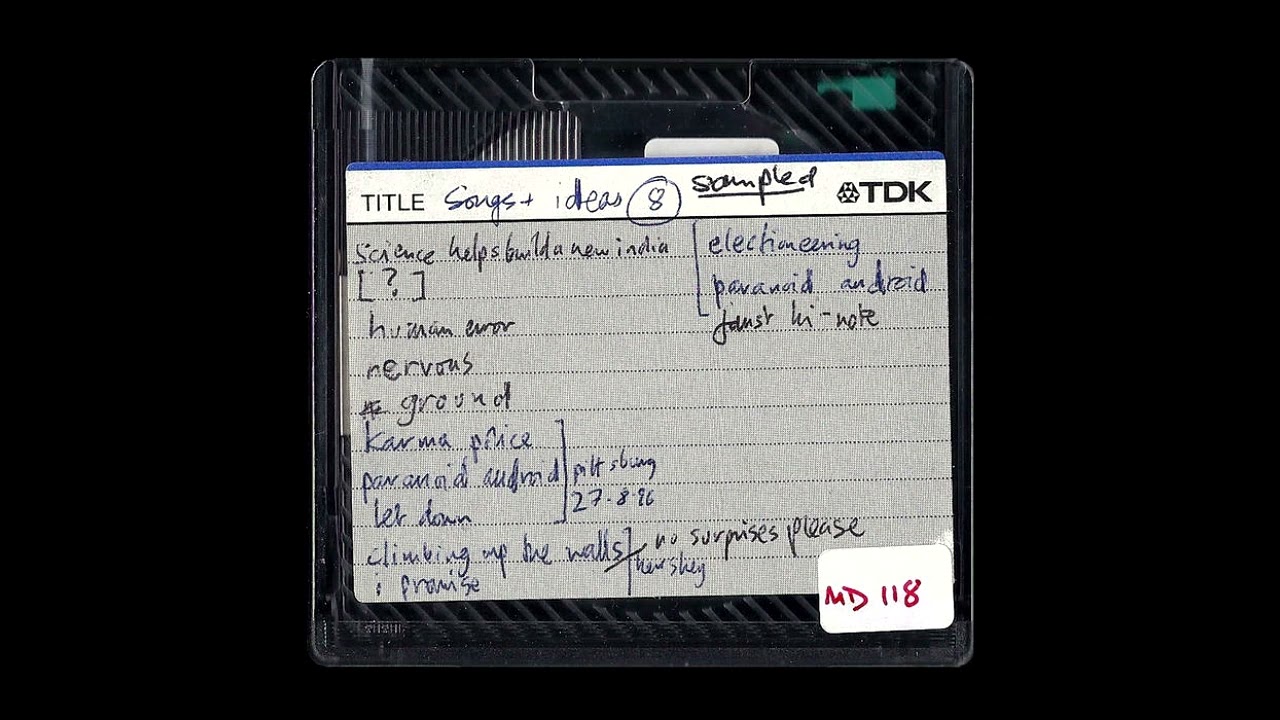 TITLE Songs + ideas 8 sampled TDK
science helps build a new india
[ ? ]
human error
nervous
# ground
karma police
paranoid android
let down
pittsburg
27-8-96
climbing up the walls
i promise
hershey
no surprises please
electioneering
paranoid android
faust hi-note
MD 118